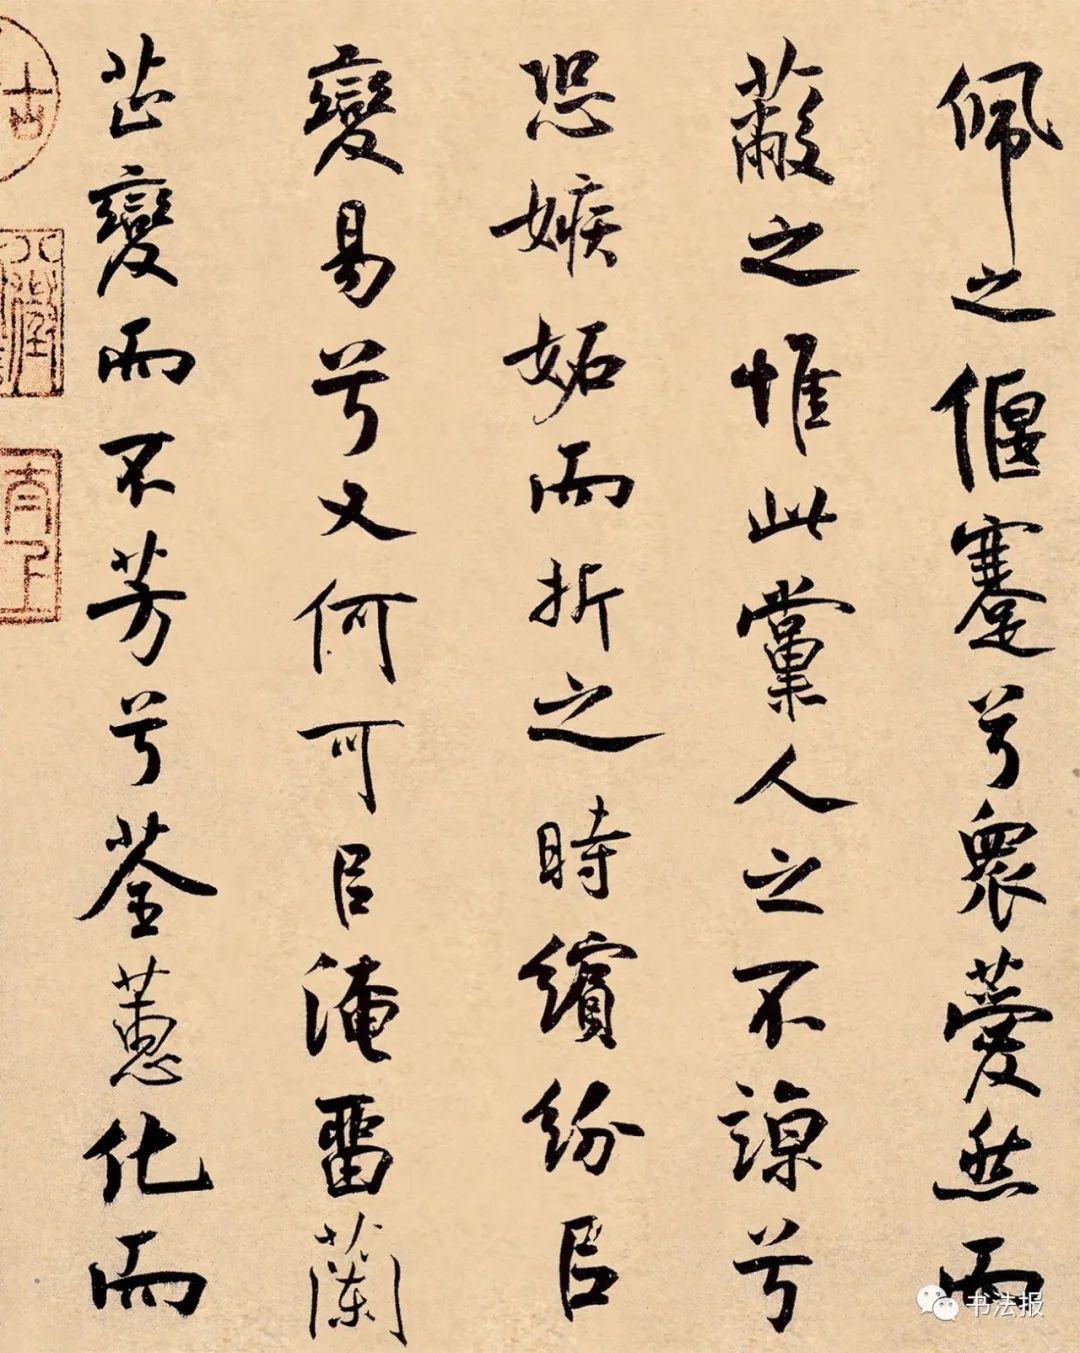 佩之偃蹇兮衆薆然而
蔽之惟此黨人之不諒兮
恐嫉妬而折之時繽紛㠯
變易兮又何可㠯淹留蘭
芷變而不芳兮荃蕙化而
書法报